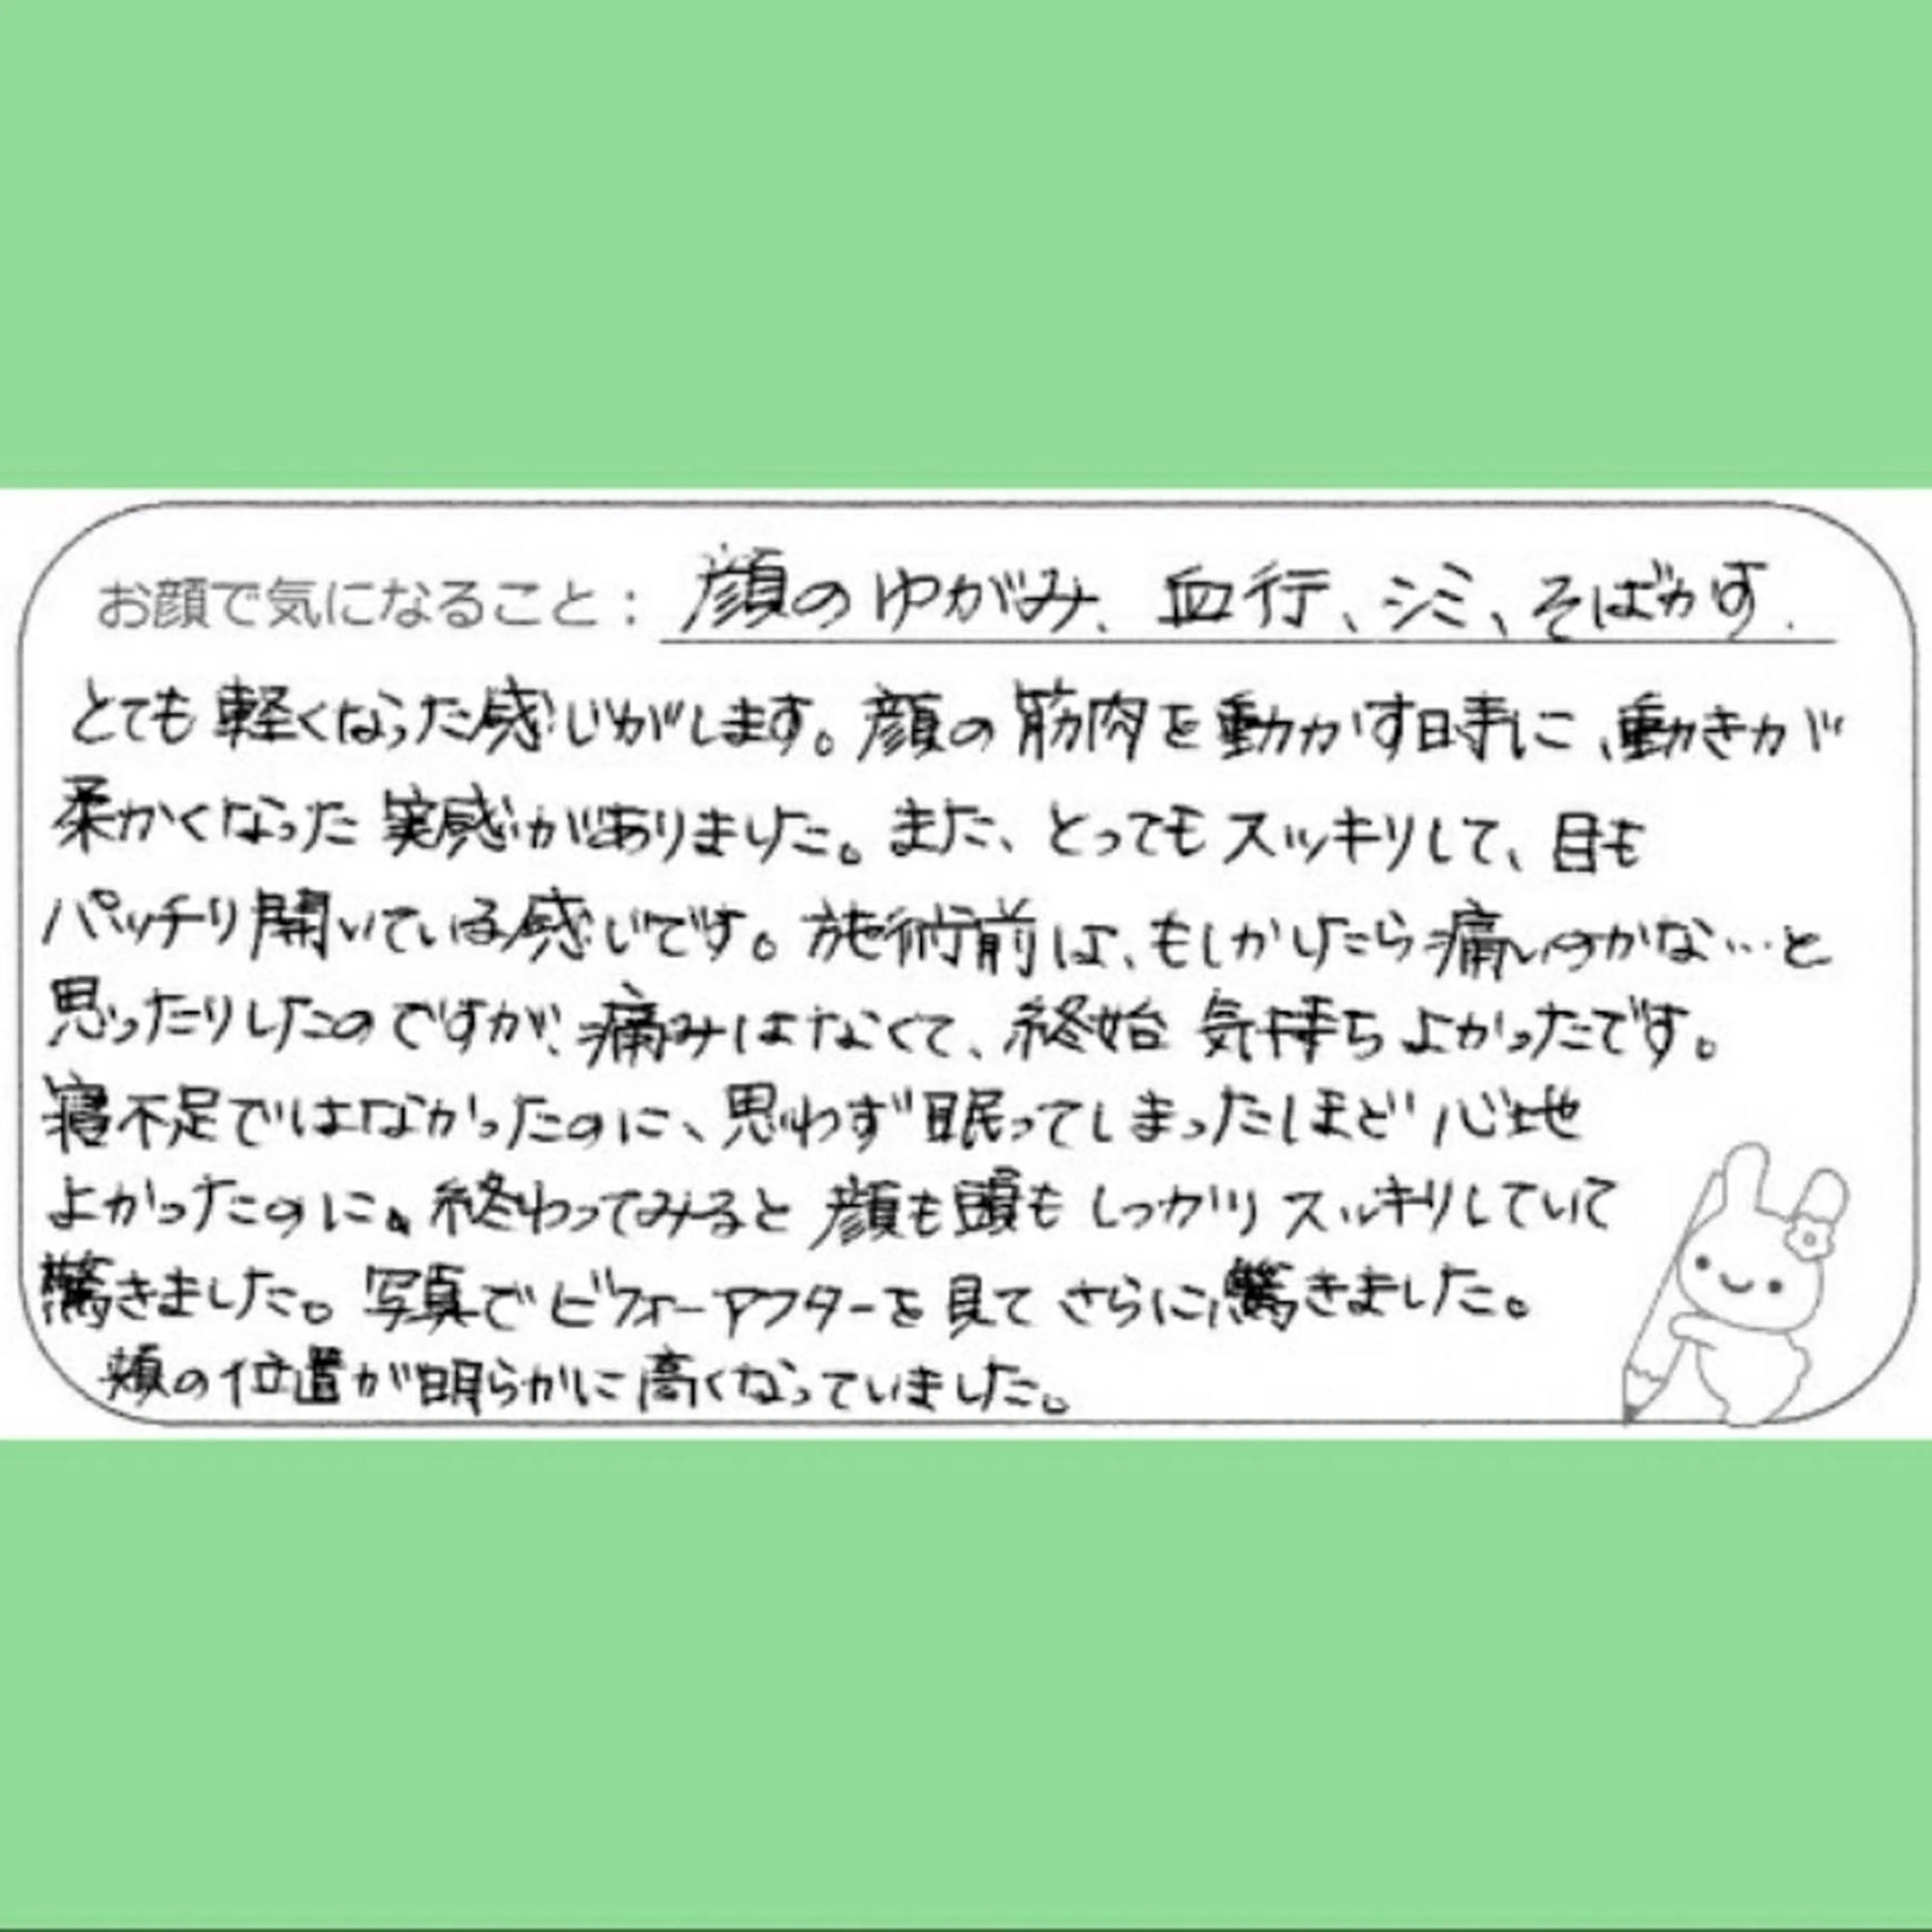 お顔で気になること：顔のゆがみ、血行、シミ、そばかす.
とても軽くなった感じがします。顔の筋肉を動かす時に、動きが
柔かくなった実感がありました。また、とってもスッキリして、目も
パッチリ開いている感じです。施術前は、もしかしたら痛いのかな…と
思ったりしたのですが、痛みはなくて、終始気持ちよかったです。
寝不足ではなかったのに、思わず眠ってしまったほど心地
よかったのに、終わってみると顔も頭もしっかりスッキリしていて
驚きました。写真でビフォーアフターを見てさらに驚きました。
頬の位置が明らかに高くなっていました。